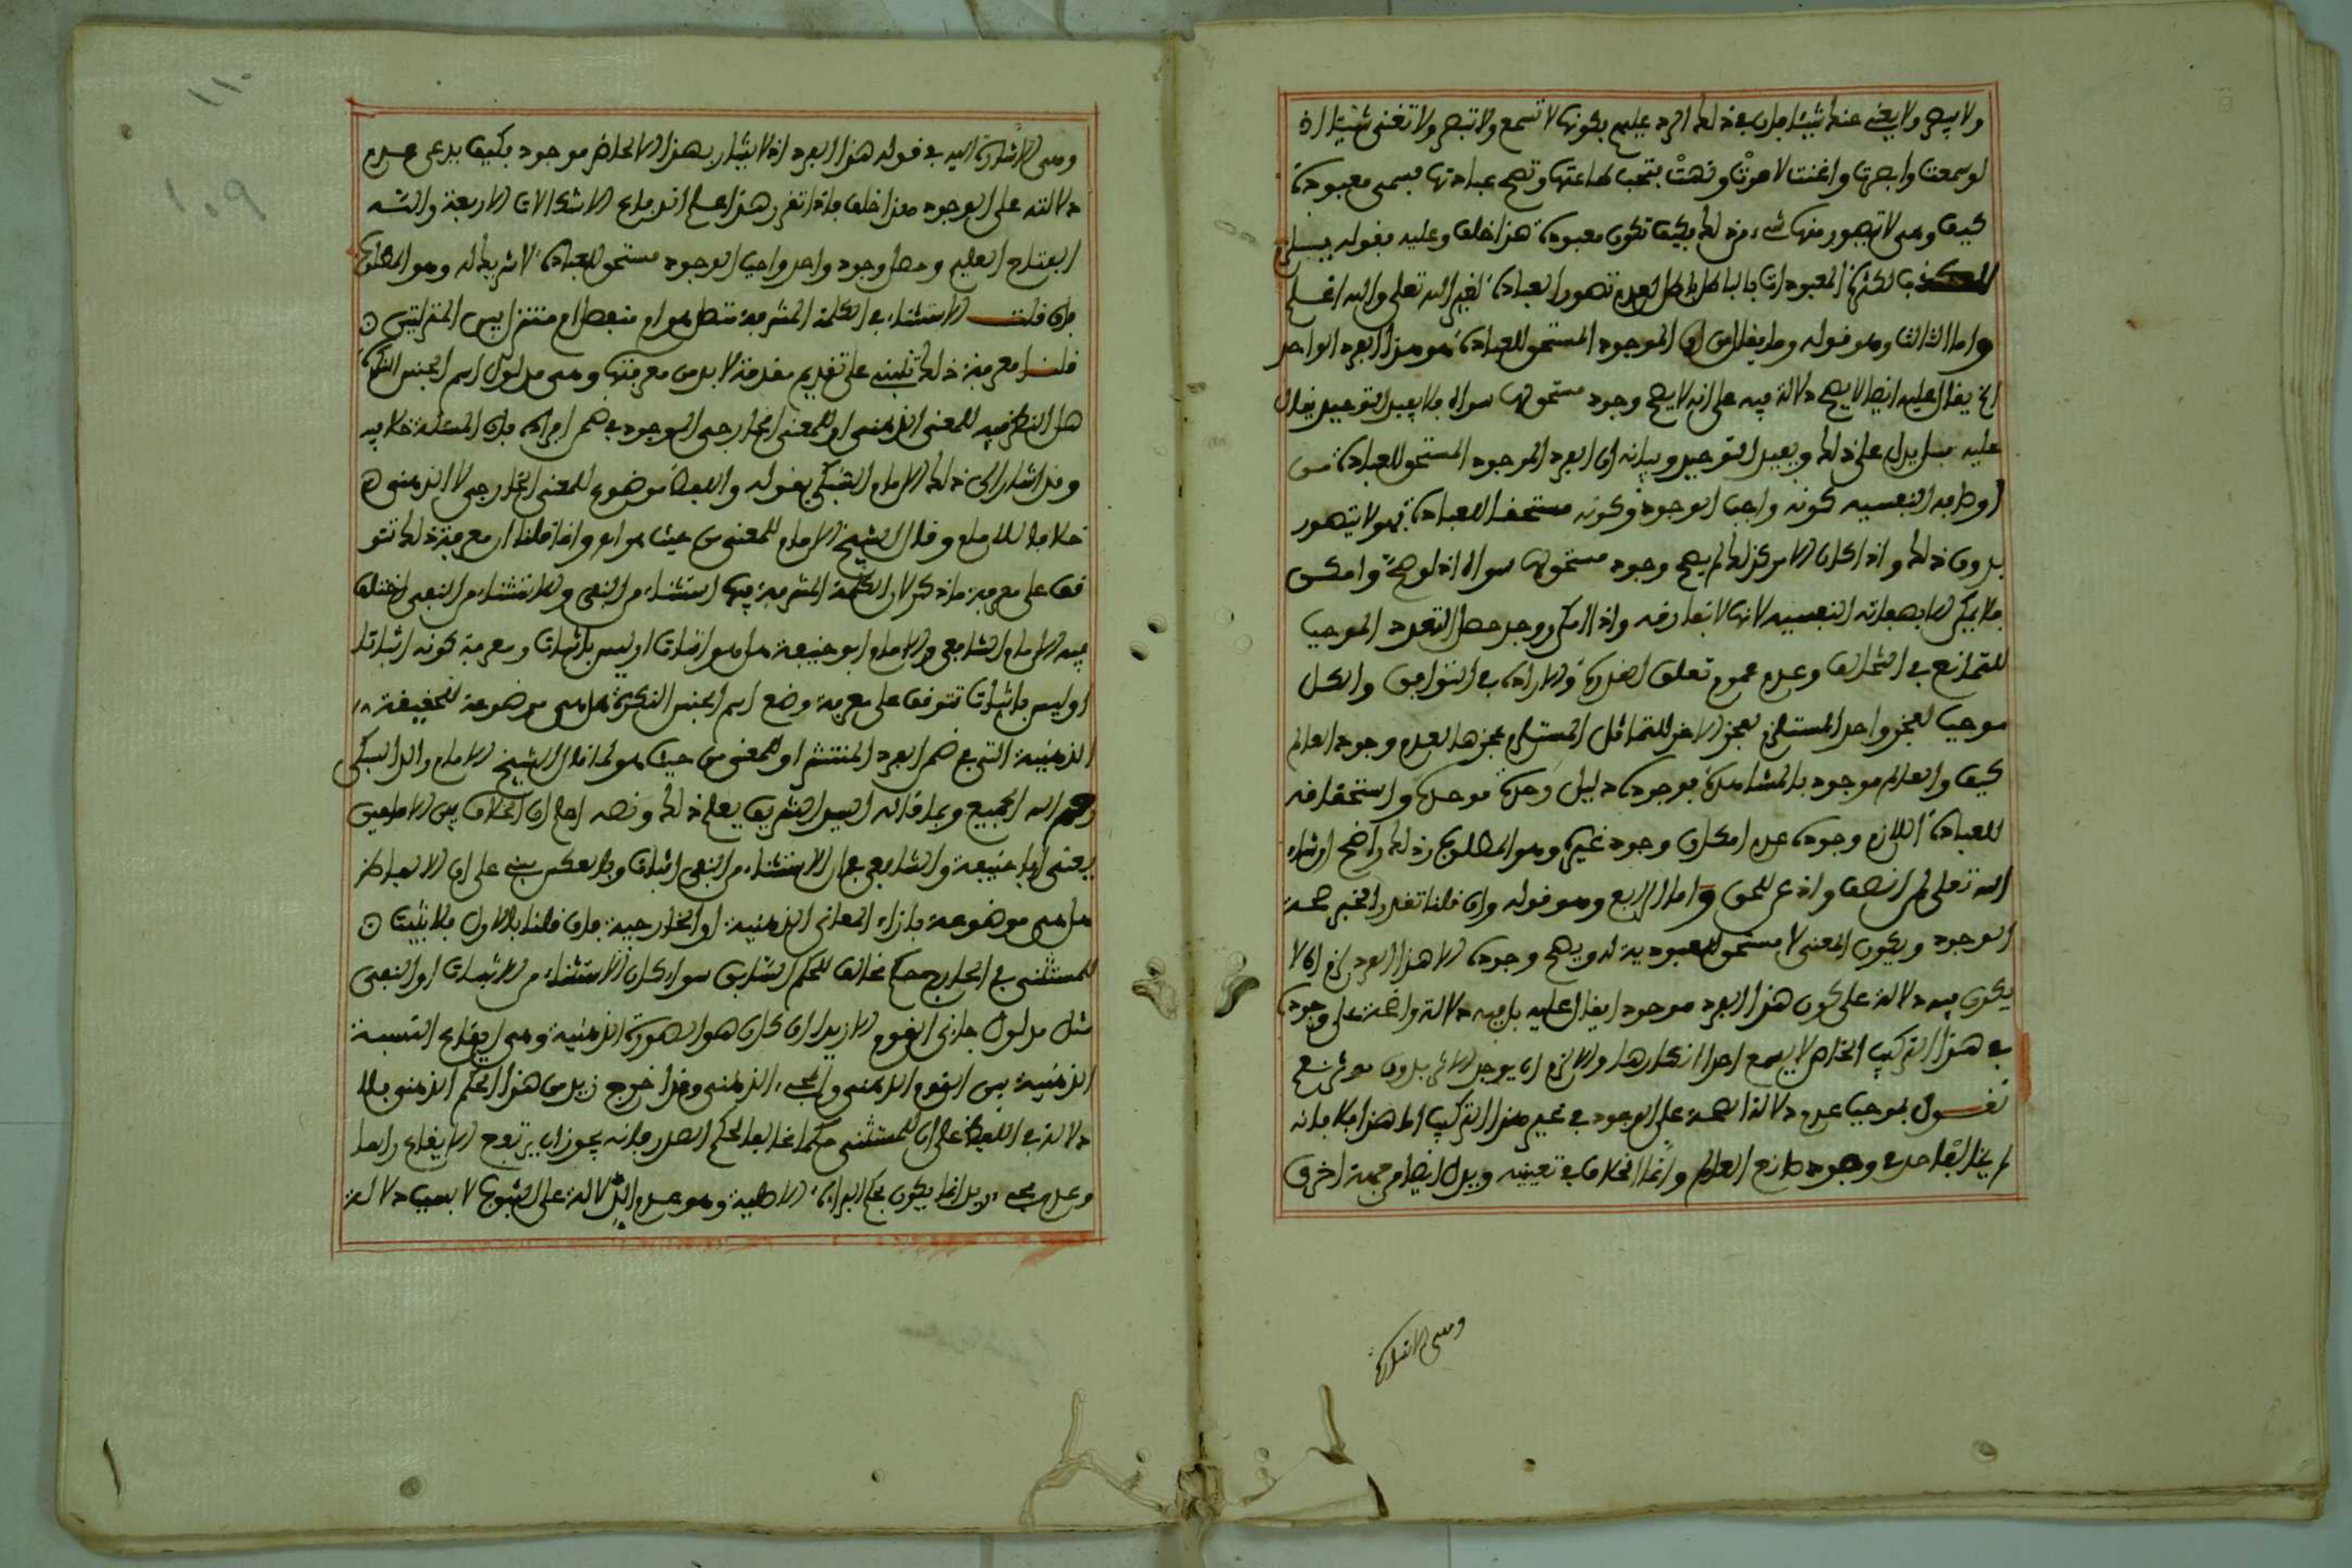 ولا يبصر ولا يغني عنك شيئا فان في ذلك الرد عليهم بكونها لا تسمع ولا تبصر ولا تغني شيئا اذ
لو سمعت وابصرت واغنت لامرت ونهت فتجب طاعتها وتصح عبادتها فتسمى معبودة
كيف وهي لا يتصور منها شيء من ذلك فكيف تكون معبودة هذا خلف وعليه فقوله فيستلزم
الكذب لكثرة المعبودات بالباطل باطل لعدم تصور العبادة لغير الله تعلى والله اعلم
واما الثالث وهو قوله وما يقال من ان الموجود المستحق للعبادة هو هذا الفرد الواحد
الخ يقال عليه ايضا لا يصح دلالة فيه على انه لا يصح وجود مستحق لها سواه فلا يفيد التوحيد يقال
عليه بل يدل على ذلك ويفيد التوحيد وبيانه ان الفرد الموجود المستحق للعبادة من
اوصافه النفسية كونه واجب الوجود وكونه مستحقا للعبادة فهو لا يتصور
بدون ذلك واذا كان الامر كذلك لم يصح وجود مستحق لها سواه اذ لو صح وامكن
فلا يمكن الا بصفاته النفسية لانها لا تفارقه واذا امكن ووجد حصل التعدد الموجب
للتمانع في التخالف وعدم عموم تعلق القدرة والارادة في التوافق والكل
موجب لعجز واحد المستلزم لعجز الاخر للتماثل المستلزم عجزهما لعدم وجود العالم
كيف والعالم موجود بالمشاهدة فوجوده دليل وحدة موجده واستحقاقه
للعبادة اللازم وجوده عدم امكان وجود غيره وهو المطلوب وذلك واضح ان شاء
الله تعلى لمن انصف واذعن للحق واما الرابع وهو قوله وان قلنا تقدر الخبر صحة
الوجود ويكون المعنى لا مستحق للعبودية له ويصح وجوده الا هذا الفرد لزم ان لا
يكون فيه دلالة على كون هذا الفرد موجودا يقال عليه بل فيه دلالة واضحة على وجوده
في هذا التركيب الخاص لا يسع احدا انكارها والا لزم ان يوجد الاثر بدون موثر نعم
نقول بموجب عدم دلالة الصحة على الوجود في غير هذا التركيب اما هذا فلا فانه
لم يخالف احد في وجود صانع العالم وانما الخلاف في تعيينه ويدل ايضا من جهة اخرى
وهي الاشارة
١١٠
١٠٩
وهي الاشارة اليه في قوله هذا الفرد اذ لا يشار بهذا الا لحاضر موجود فكيف يدعى عدم
دلالته على الوجود هذا خلف فاذا تقرر هذا علم اندفاع الاشكالات الاربعة والله
الفتاح العليم وحصل وجود واحد واجب الوجود مستحق للعبادة لا شريك له وهو المطلوب
فان قلت الاستثناء في الكلمة المشرفة متصل هو ام منفصل ام منتف بين المنزلتين
قلنا معرفة ذلك تنبني على تقديم مقدمة لا بد من معرفتها وهي مدلول اسم الجنس النكرة
هل النظر فيه للمعنى الذهني او للمعنى الخارجي الموجود في ضمن افراده فان المسئلة خلافية
وقد اشار الى ذلك الامام السبكي بقوله واللفظ موضوع للمعنى الخارجي لا الذهني
خلافا للامام وقال الشيخ الامام للمعنى من حيث هو اه وانما قلنا ان معرفة ذلك تتو
قف على معرفة ما ذكر لان الكلمة المشرفة فيها استثناء من النفي والاستثناء من النفي اختلف
فيه الامام الشافعي والامام ابو حنيفة هل هو اثبات او ليس باثبات ومعرفة كونه اثباتا
او ليس باثبات تتوقف على معرفة وضع اسم الجنس النكرة هل هي موضوعة للحقيقة
الذهنية التي في ضمن الفرد المنتشر او للمعنى من حيث هو كما قال الشيخ الامام والد السبكي
رحم الله الجميع وبما قاله السيد الشريف يعلم ذلك ونصه اعلم ان الخلاف بين الامامين
يعني ابا حنيفة والشافعي في ان الاستثناء من النفي اثبات وبالعكس مبني على ان الالفاظ
هل هي موضوعة بازاء المعاني الذهنية او الخارجية فان قلنا بالاول فلا يثبت
للمستثنى في الخارج حكم مخالف للحكم السابق سواء كان الاستثناء من الاثبات او النفي
مثل مدلول جاءني القوم الا زيدا ان كان هو الصورة الذهنية وهي ايقاع النسبة
الذهنية بين القوم الذهني والمجيء الذهني وقد اخرج زيد من هذا الحكم الذهني فلا
دلالة في اللفظ على ان للمستثنى حكما مخالفا لحكم الصدر فانه يجوز ان يرتفع الايقاع رافعا
وعدم مجيء زيد انما يكون بحكم البراءة الاصلية وهو عدم الدلالة على الثبوت لا بسبب دلالة